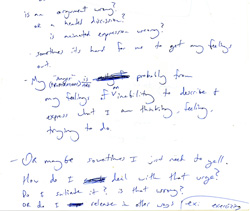 is an argument wrong?
or a heated discussion?
is animated expression wrong?
- sometimes its hard for me to get my feelings
out.
- My "anger" is probally from
my feelings of inability to describe &
express what I am thinking, feeling,
trying to do.
- OR maybe sometimes I just need to yell.
How do I deal with that urge?
Do I satiate it? is that wrong?
OR do I release in other ways (ex: exercising